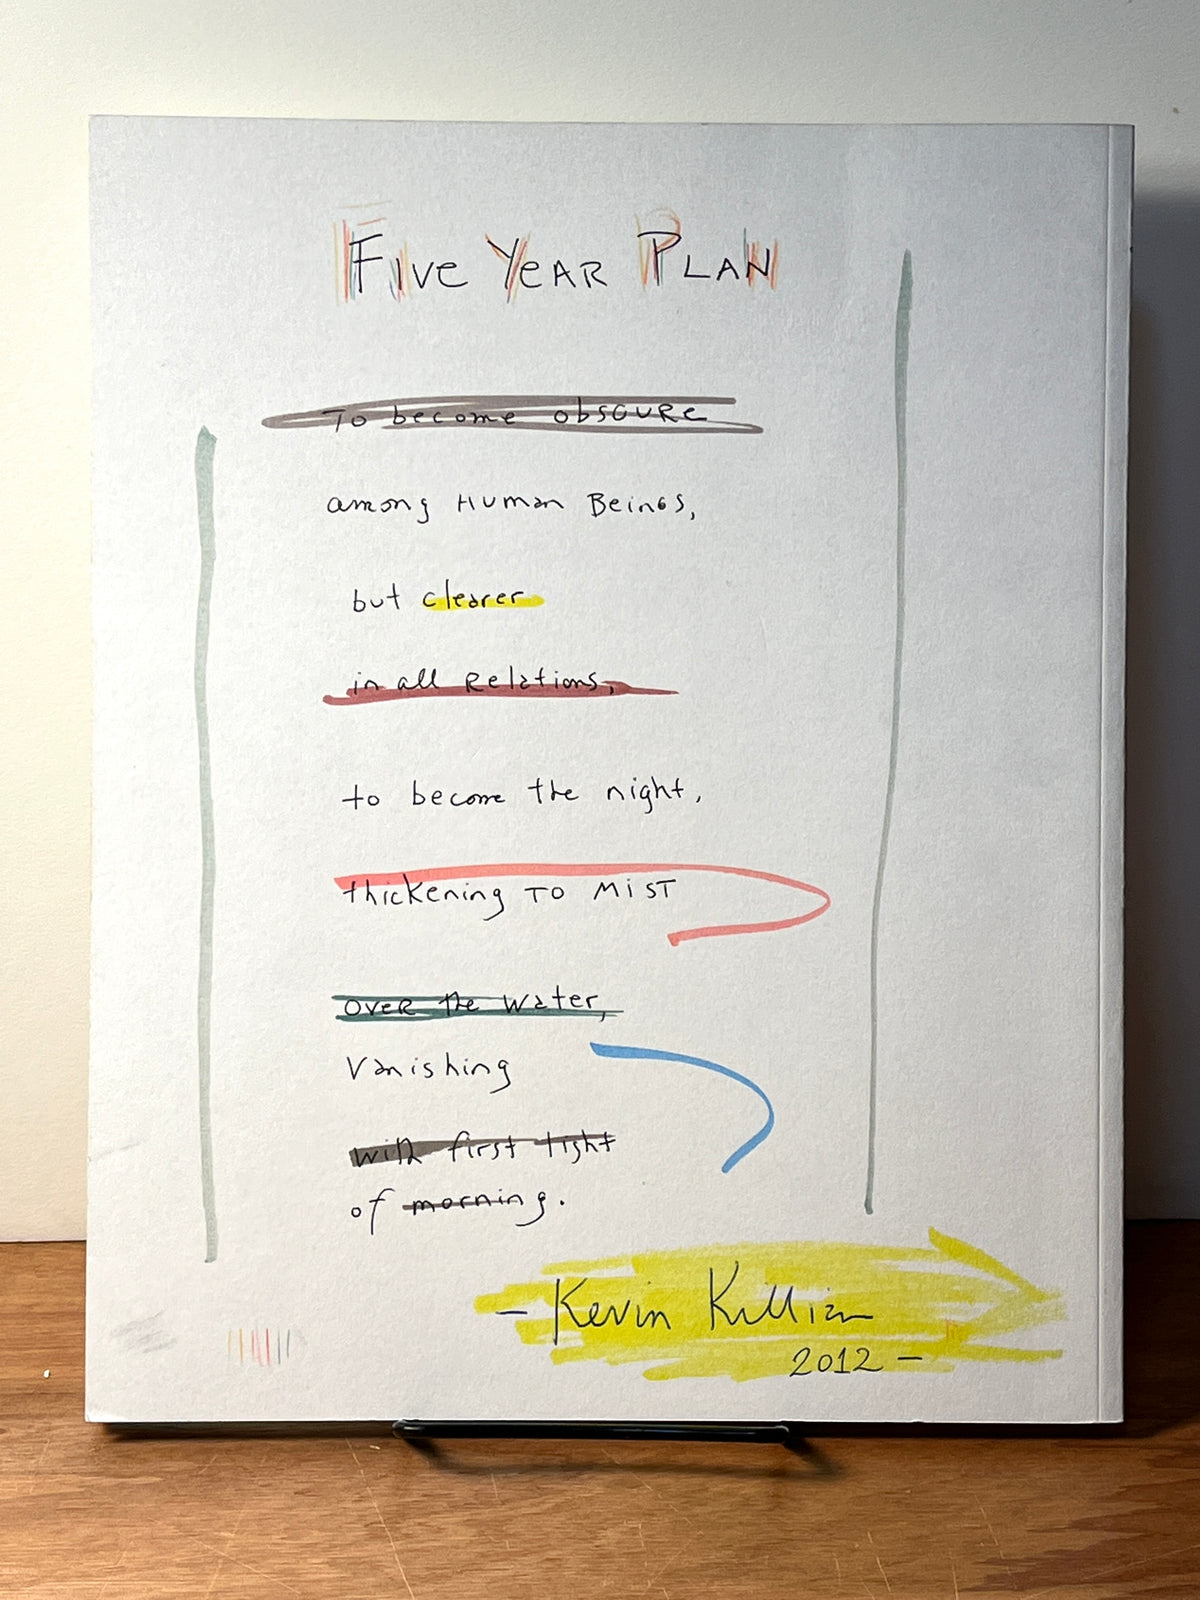 Five Year Plan
To become obscure
among Human Beings,
but clearer
in all Relations,
to become the night,
thickening TO MiST
over the Water,
Vanishing
with first light
of morning.
- Kevin Killian
2012 -